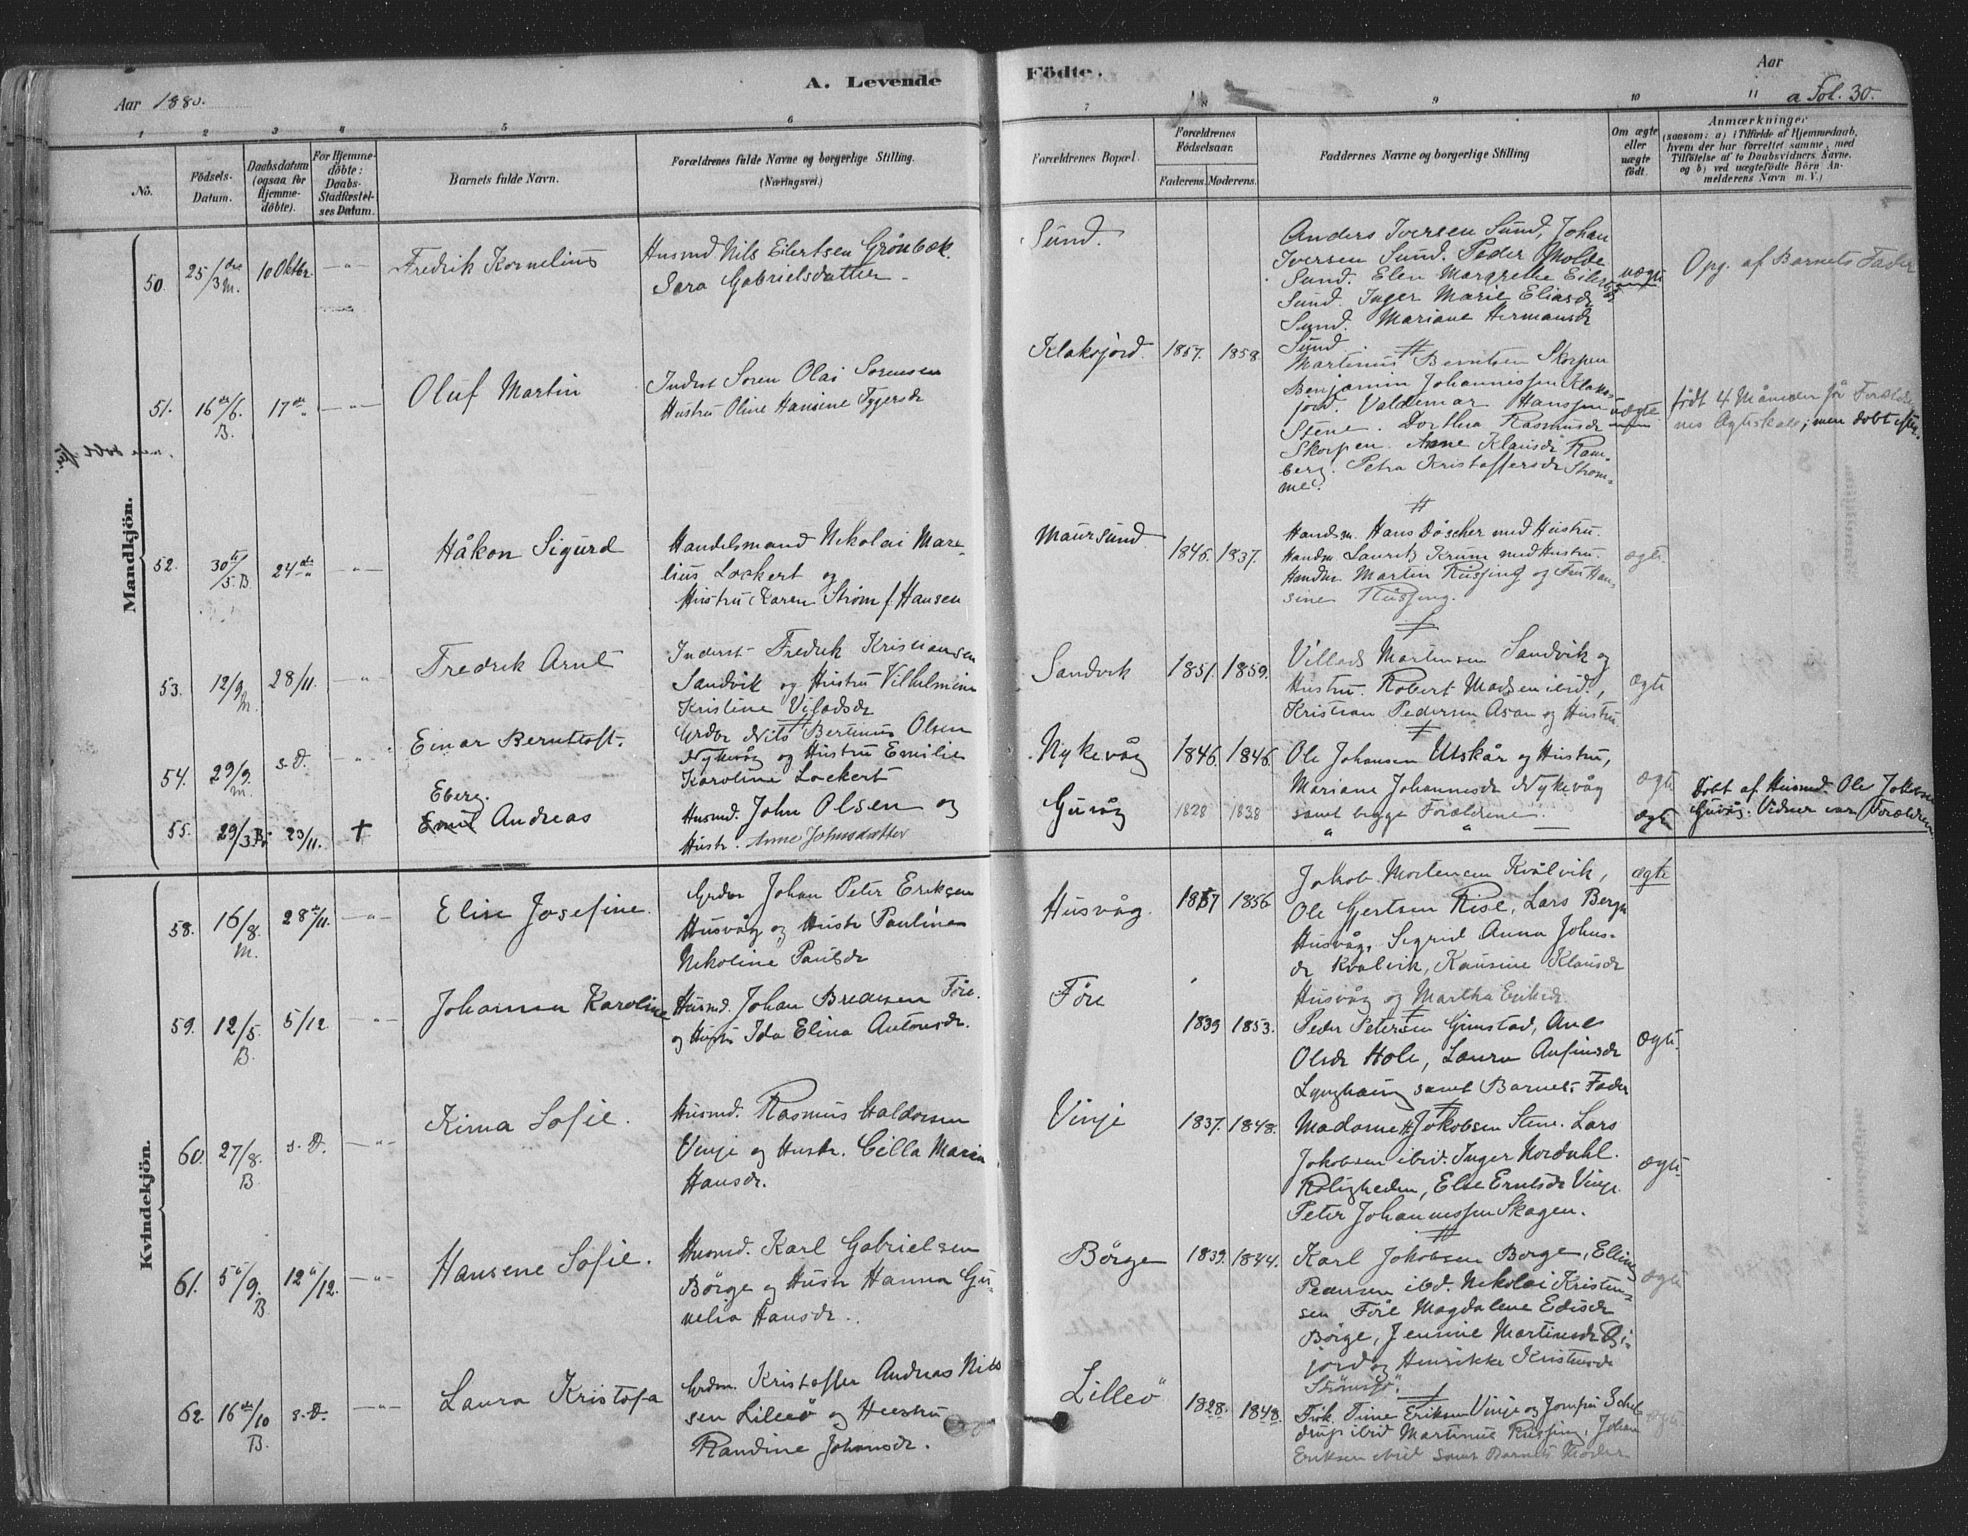 A. Levende
Födte.
Aar 1880.
Aar
a Fol. 30.
1 2 3 4 5 6 7 8 9 10 11
No.
Födsels-Datum.
Daabsdatum (ogsaa for Hjemme-döbte).
For Hjemme-döbte: Daabs-Stadfæstel-ses Datum.
Barnets fulde Navn.
Forældrenes fulde Navne og borgerlige Stilling.
(Næringsvei.)
Forældrenes Bopæl.
Forældrenes Födselsaar.
Faderens. Moderens.
Faddernes Navne og borgerlige Stilling
Om ægte eller uægte födt.
Anmærkninger
(saasom: a) i Tilfælde af Hjemmedaab,
hvem der har forrettet samme, med
Tilföielse af to Daabsvidners Navne.
og b) ved uægtefödte Börn An-
melderens Navn m. V.)
Mandkjön.
50. 25/3 M. 10 Oktbr. Fredrik Kornelius
Husmd Nils Eilertsen Grönbæk.
Sara Gabrielsdatter
Sund.
Anders Iversen Sund, Johan
Iversen Sund. Peder Molde
Sund. Elen Margrethe Eilersd
Sund. Inger Marie Eliasdr
Sund. Mariane Hermansdr
Sund
uægte
Opg. af Barnets Fader
51. 16de/6. B. 17de Oluf Martin
Inderst Soren Olai Sorensen
Hustru Oline Hansine
Klaksjord. 1857. 1858.
Martinus Berntsen Skorpen
Benjamin Johannessen Klaks-
jord. Valdemar Hanssen
Stene. Dorthea Rasmusdr
Skorpen. Anne Klausdr Ram-
berg. Petra Kristoffersdr Strom-
me.
uægte
födt 4 Maaneder för Foreldre
nes Ægteskab; men dobt efter.
52. 30te/5. B. 24de Håkon Sigurd
Handelsmand Nikolai Mare-
lius Lockert og
Hustru Karen Strøm f Hansen
Maursund. 1846. 1837.
Handsm. Hans Döscher med Hustru.
Handm. Lauritz Krum med Hustru.
Handm. Martin Rusfing og Fru Han-
sine Rusfing.
ægte
53. 12/9 M. 28/11. Fredrik Arnt
Inderst Fredrik Kristiansen
Sandvik og Hustru Vilhelmine
Kristine Viladsdr
Sandvik 1851. 1859.
Villads Martensen Sandvik og
Hustru. Robert Madsen ibid.,
Kristian Pedersen Asan og Hustru
ægte
54. 29/9. M. s.D. Einar Berntoft.
Grdbr Nils Bertinus Olsen
Nykvåg og Hustru Emilie
Karoline Lockert
Nykevåg 1846. 1846.
Ole Johansen Utskår og Hustru,
Mariane Johannesdr Nykevåg
samt begge Forældrene.
ægte
55. 29/3 B. 23/11. + Eberg. Emil Andreas
Husmd. John Olsen og
Hustr. Anne Johnsdatter
Guvåg 1828 1838
ægte
Dobt af Husmd. Ole Jokobsen
Guvåg. Vidner var Forældrene
Kvindekjön.
58. 16/8. M. 28de/11. Elise Josefine.
Grdbr Johan Peter Eriksen
Husvåg og Hustr Pauline
Nikoline Paulsdr
Husvåg. 1857 1856
Jakob Mortensen Kvålvik,
Ole Gjertsen Rise, Lars Bergh
Husvåg, Sigrid Anna Johns-
dr Kvalvik, Hansine Klausdr
Husvåg og Martha Eriksdr.
ægte
59. 12/5. B. 5/12. Johanna Karoline
Husmd. Johan Bredesen Före.
og Hustr Ida Elina Antonsdr.
Före 1839 1853.
Peder Petersen Grimstad, Ane
Olsdr Hole, Laura Anfinsdr
Lynghaug samt Barnets Fader
ægte.
60. 27/8. B. s.D. Kirna Sofie.
Husmd. Rasmus Haldorsen
Vinje og Hustr. Cilla Maria
Hansdr.
Vinje 1837. 1848.
Madame Jokobsen Stene. Lars
Jokobsen ibid. Inger Nordahl.
Roligheden, Else Erntsdr Vinje.
Peter Johannessen Skagen.
ægte.
61. 5te/9. B. 12te/12. Hansene Sofie.
Husmd. Karl Gabrielsen
Börge og Hustr Hanna Gu-
nelia Hansdr.
Börge 1839. 1844.
Karl Jokobsen Borge, Eling
Pedersen ibd. Nikolai Kristen-
sen Före Magdalene Edisdr
Börge, Jennine Martinsdr Gi-
jord og Henrikke Kristensdr
ægte
62. 16de/10 B. s.D. Laura Kristofa
Grdm. Kristoffer Andreas Nils
sen Lilleö og Hustru
Randine Johansdr.
Lilleö 1828. 1848.
Frk. Trine Eriksen Vinje og Jomfru Schel
drup ibid Martinus Rusfing, Johan
Eriksen ibid samt Barnets Moder
ægte